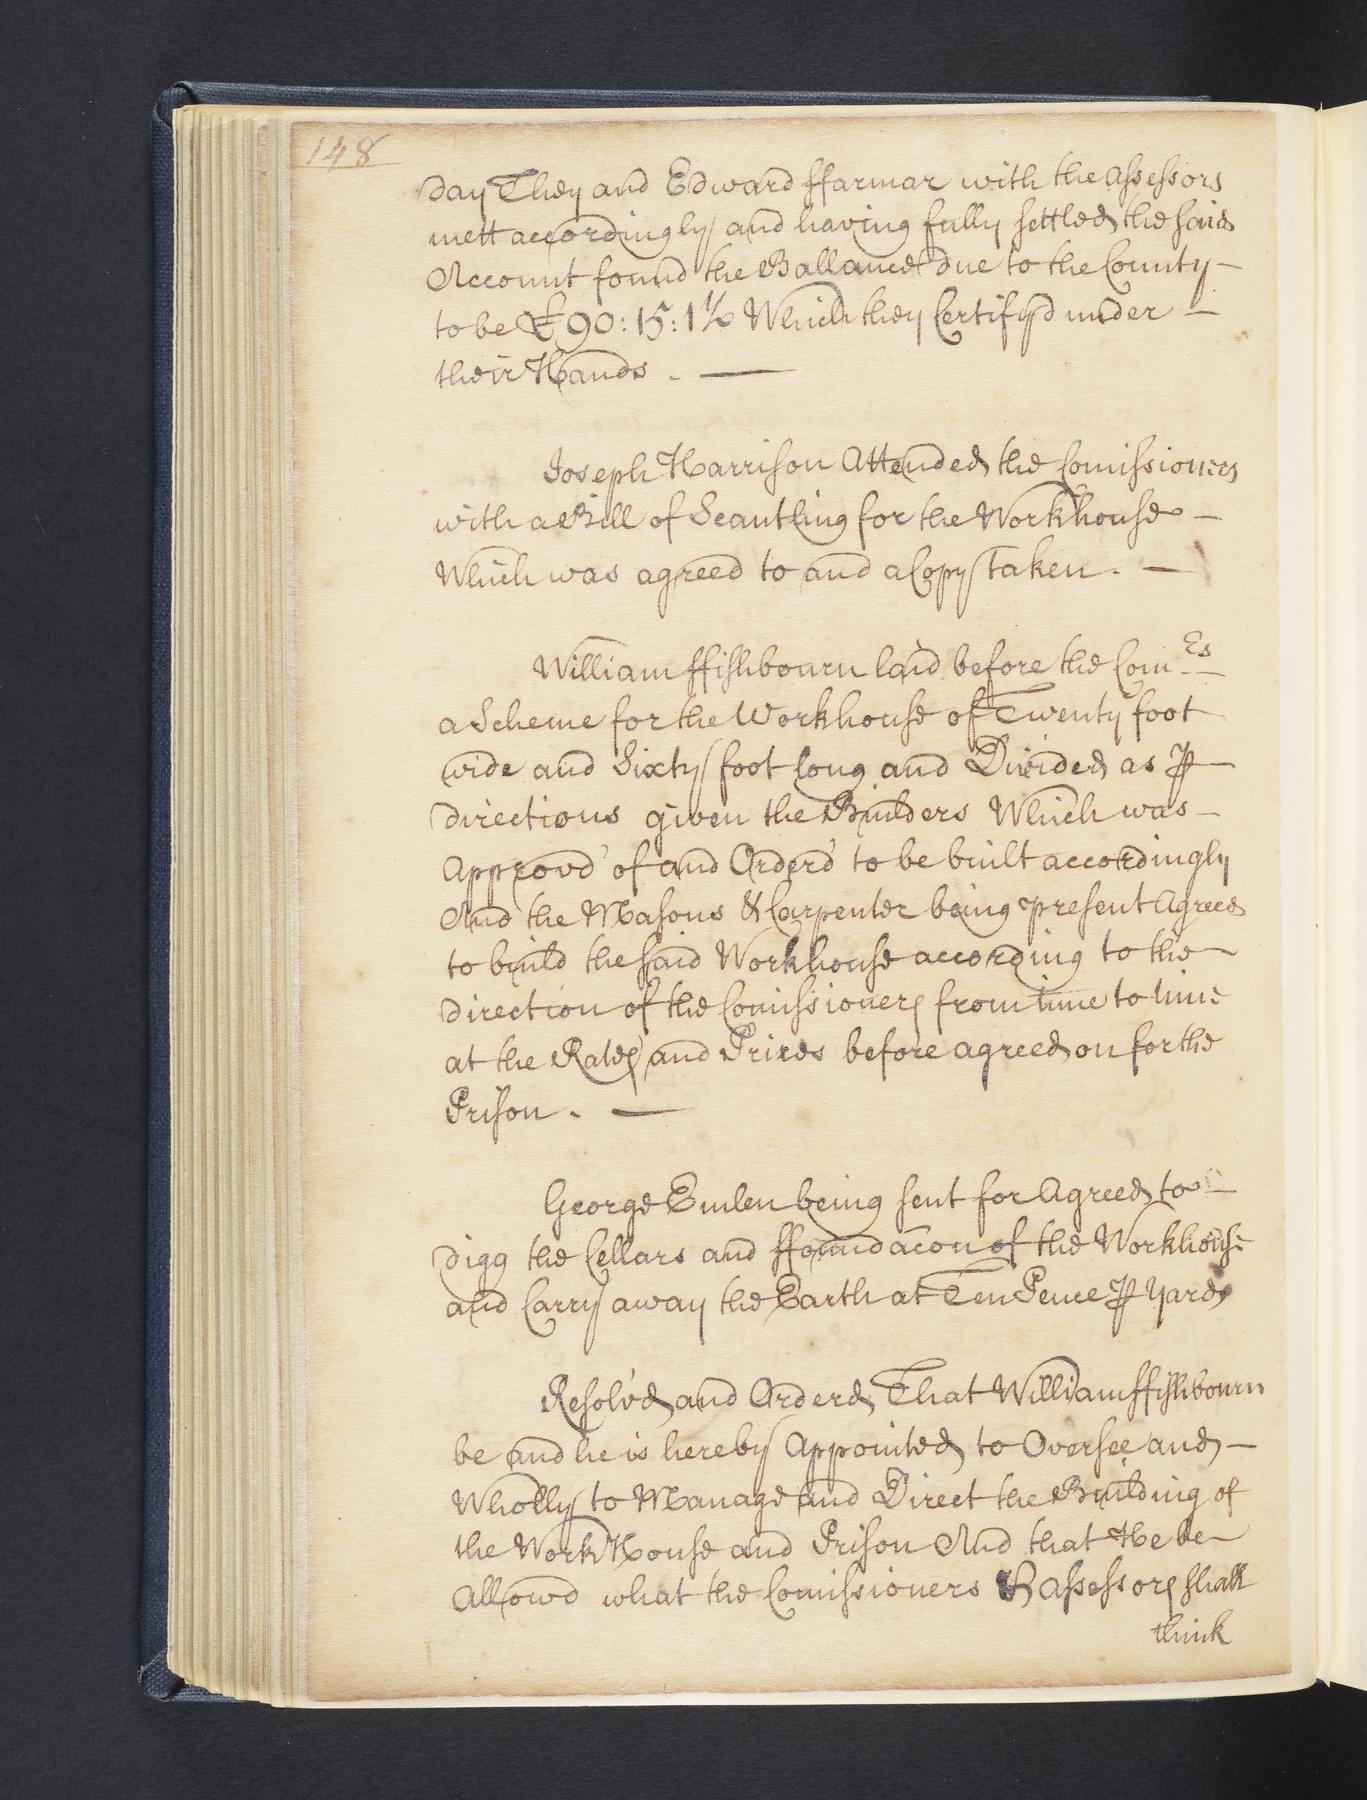 148
day They and Edward ffarmar with the assessors
mett accordingly and having fully settled the said
Account found the Ballance due to the County –
to be £90:15:1½ Which they Certifyd under –
their Hands . —
Joseph Harrison Attended the Comissioners
with a Bill of Scantling for the Workhouse –
Which was agreed to and a Copy Taken . –
William ffishbourn laid before the Com.rs
a Scheme for the Workhouse of Twenty foot
wide and Sixty foot long and Divided as ⅌
directions given the Builders Which was –
Approvd of and Orderd to be built accordingly
And the Masons & Carpenter being present Agreed
to build the said Workhouse according to the
direction of the Comissioners from time to time
at the Rates and Prices before agreed on for the
Prison . —
George Emlen being sent for Agreed to –
digg the Cellars and ffoundacon of the Workhouse
and Carry away the Earth at Ten Pence ⅌ yard
Resolv'd and Orderd That William ffishbourn
be and he is hereby Appointed to Oversee and –
Wholly to Manage and Direct the Building of
the Work House and Prison And that He be
Allowd what the Comissioners & assessors shall
think